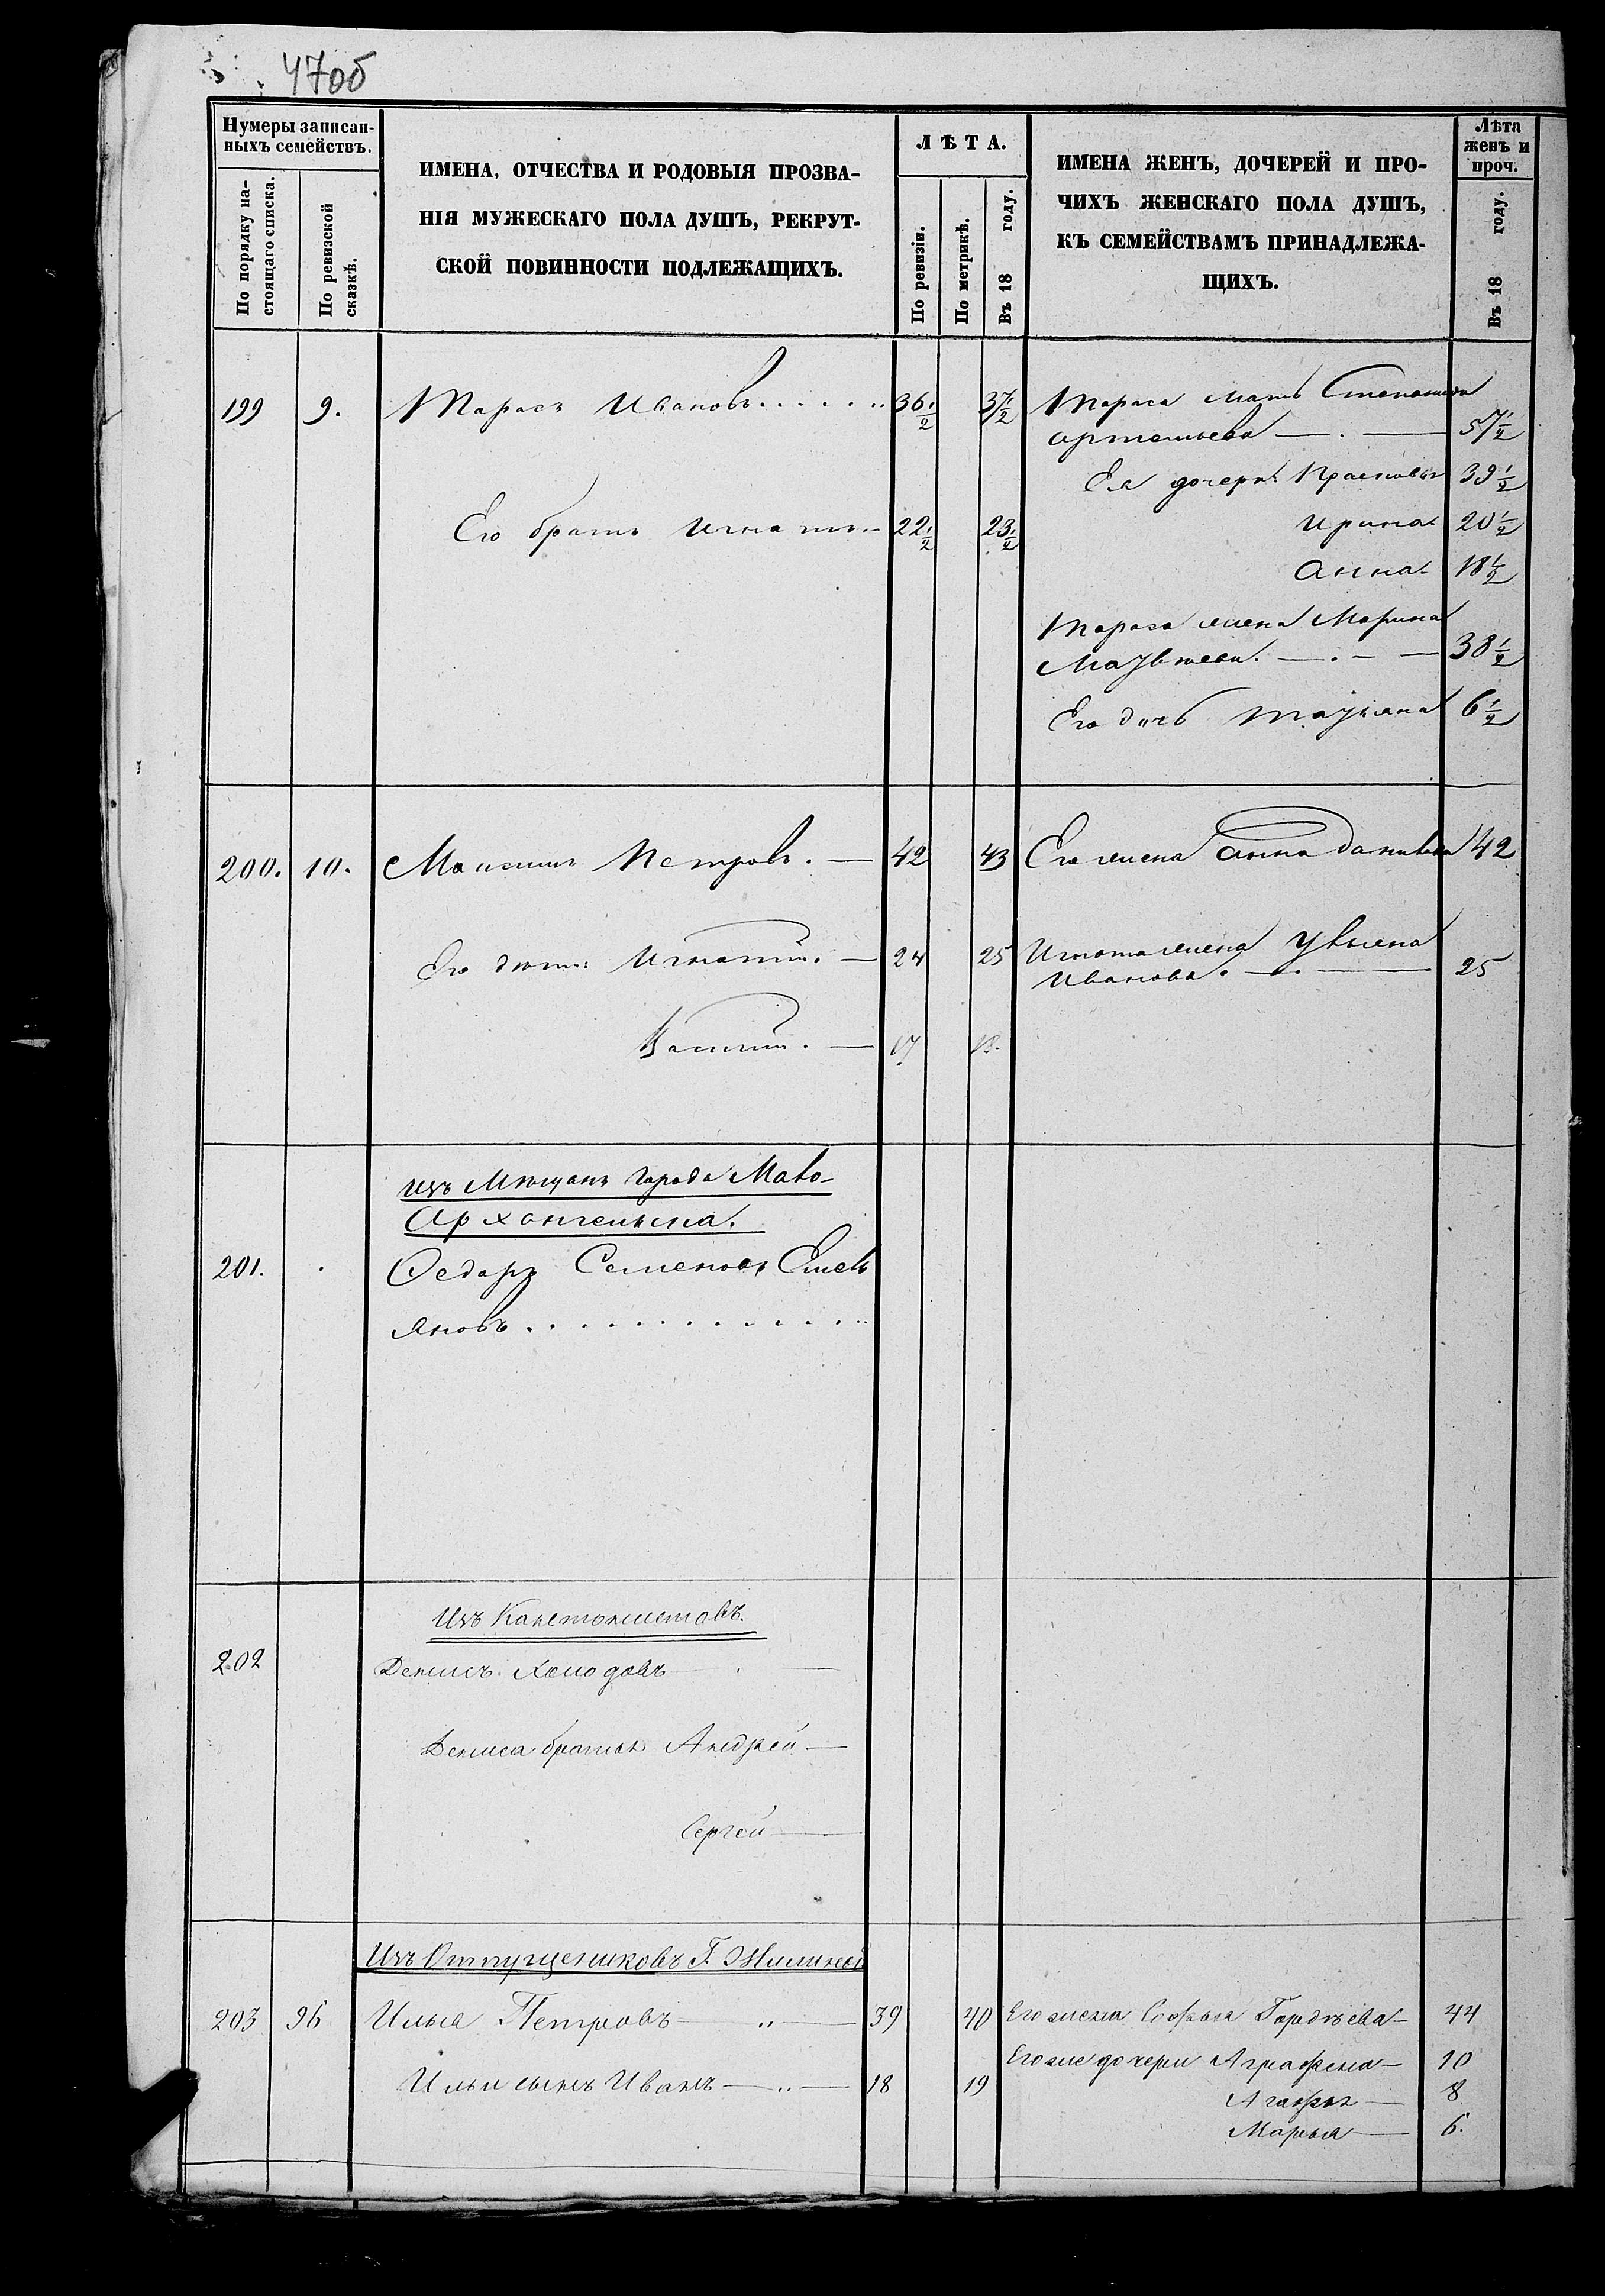 47об
Нумеры записан-
ныхъ семействъ.
По порядку на-
стоящаго списка.
По ревизской
сказкѣ.
ИМЕНА, ОТЧЕСТВА И РОДОВЫЯ ПРОЗВА-
НІЯ МУЖЕСКАГО ПОЛА ДУШЪ, РЕКРУТ-
СКОЙ ПОВИННОСТИ ПОДЛЕЖАЩИХЪ.
ЛѢТА.
По ревизіи.
По метрикѣ.
Въ 18 году.
ИМЕНА ЖЕНЪ, ДОЧЕРЕЙ И ПРО-
ЧИХЪ ЖЕНСКАГО ПОЛА ДУШЪ,
КЪ СЕМЕЙСТВАМЪ ПРИНАДЛЕЖА-
ЩИХЪ.
Лѣта
женъ и
проч.
Въ 18 году.
199 9. Тарасъ Ивановъ 36 1/2 37 1/2 Тараса мать
Артемьева 57 1/2
Ея дочери: Прасковья 39 1/2
Его братъ Игнатъ 22 1/2 23 1/2 Ирина 20 1/2
Анна 18 1/2
Тараса жена Марина
38 1/2
Его дочь Татьяна 6 1/2
200. 10. Максимъ Петровъ. 42 43 Его жена Анна Данилова 42
Его дети: Игнатій. 24 25 Игната жена Ульяна
Иванова. 25
Василій. 17 18.
изъ Мѣщанъ Города Мало-
Архангельска.
201. Федоръ Семеновъ Емель
яновъ
Изъ Кантонистовъ.
202 Денисъ Холодовъ
Дениса братья Андрей
Сергей
Изъ Отпущениковъ Г.
203 96 Илья Петровъ 39 40 Его жена Софья Гордѣева 44
Егоже дочери Аграфена 10
Ильи сынъ Иванъ 18 19
Агафья 8
Марья 6.